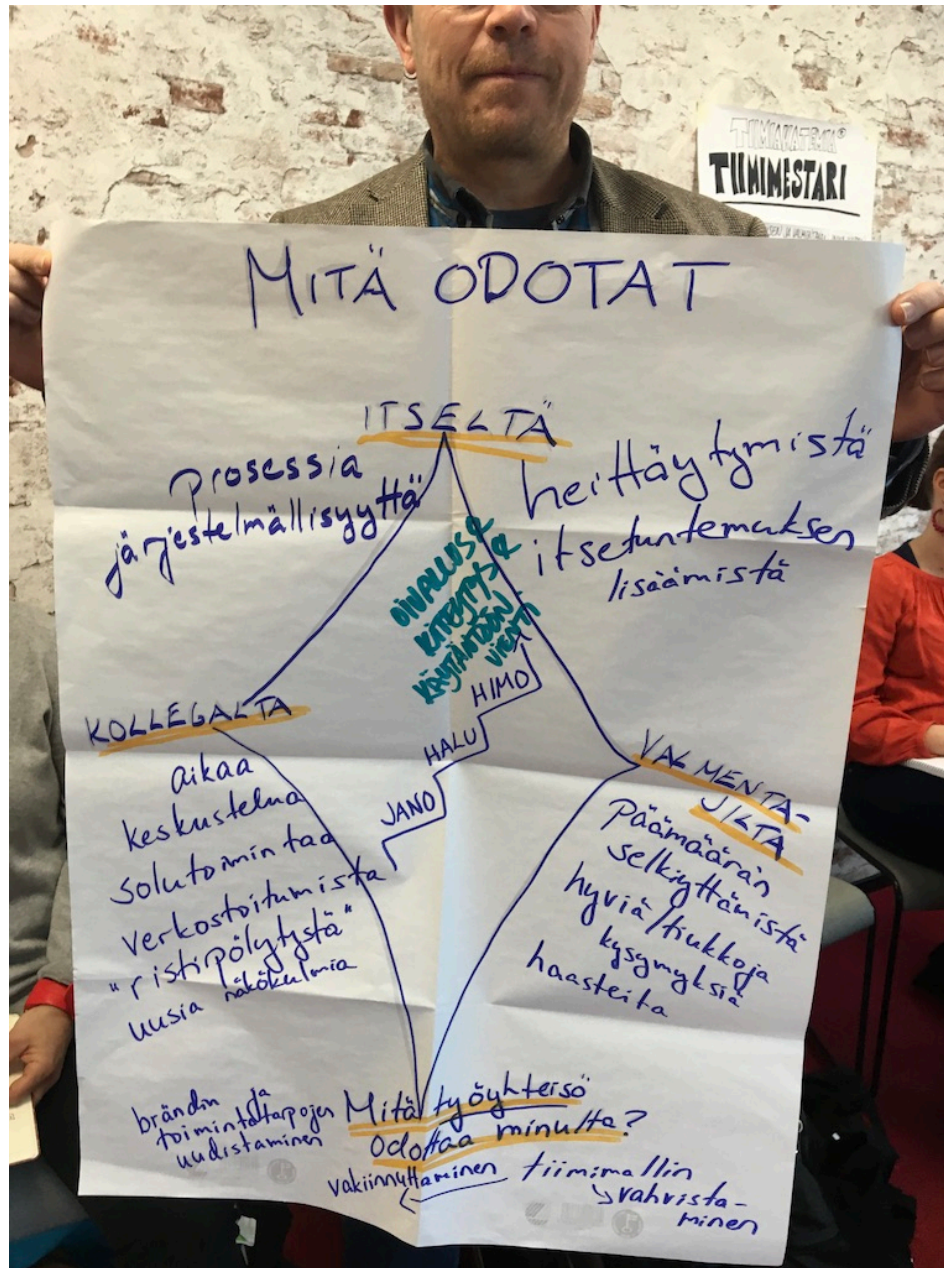 TIIMIAKATEMIA®
TIIMIMESTARI
MITÄ ODOTAT
ITSELTÄ
prosessia
järjestelmällisyyttä
heittäytymistä
itsetuntemuksen
lisäämistä
OIVALLUS &
KITEYTYS &
KÄYTÄNTÖÖN
VIENTI
HIMO
HALU
JANO
KOLLEGALTA
aikaa
keskustelua
solutoimintaa
verkostoitumista
"ristipölytystä"
uusia näkökulmia
VALMENTA-
JILTA
päämäärän
selkiyttämistä
hyviä/tiukkoja
kysymyksiä
haasteita
Mitä työyhteisö
odottaa minulta?
brändin ja
toimintatapojen
uudistaminen
vakiinnuttaminen
tiimimallin
vahvista-
minen